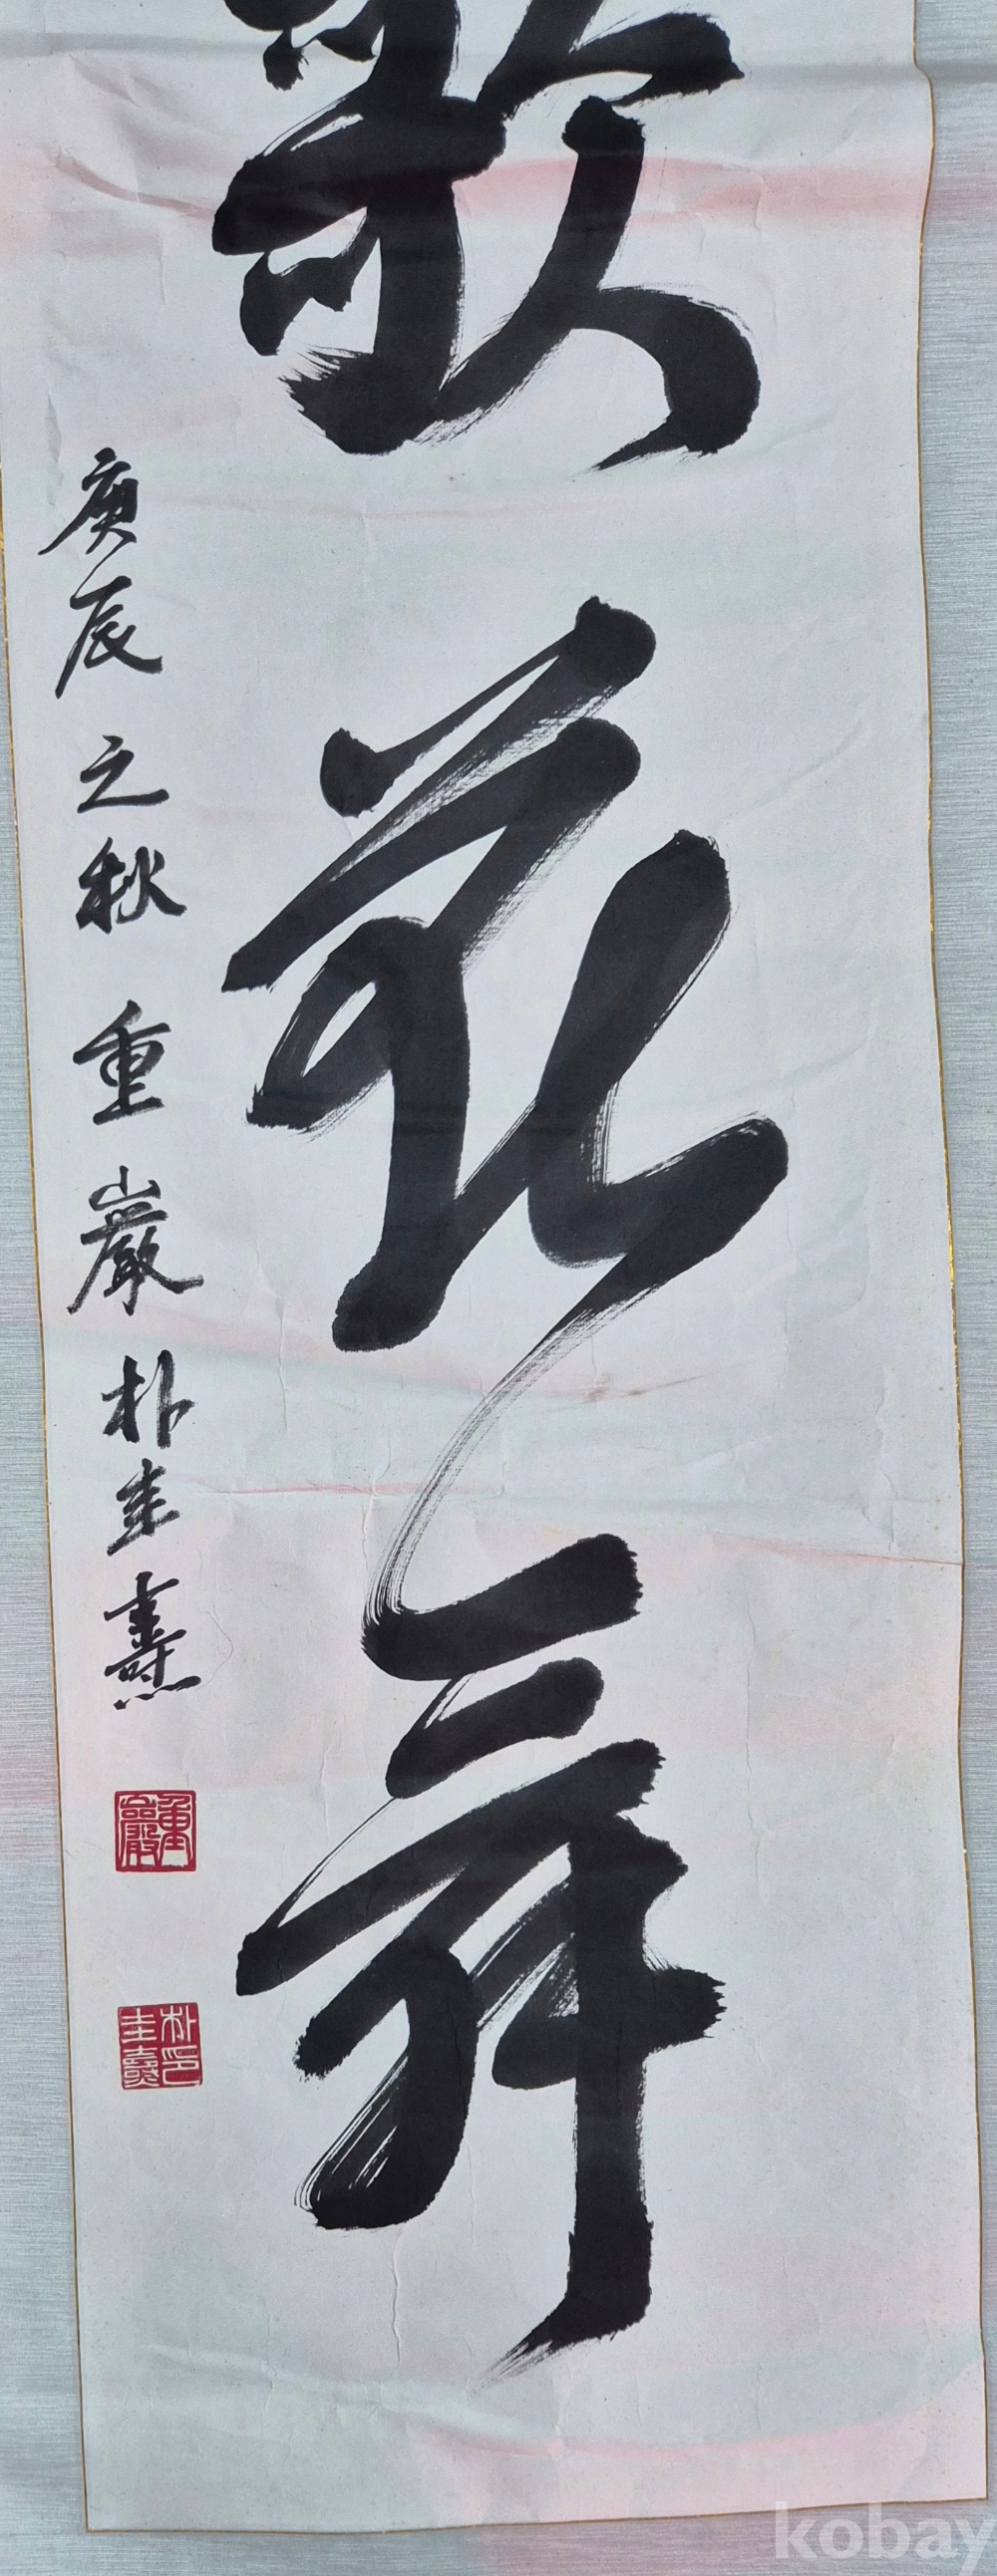 歌花舞
庚辰之秋 重巖 朴圭燾
重巖
朴圭燾印
kobay